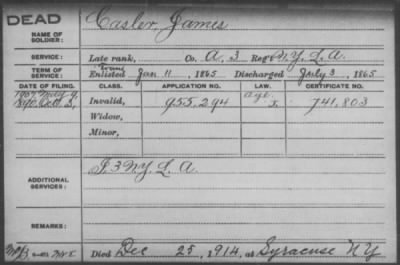 DEAD
NAME OF SOLDIER: Casler, James
SERVICE: Late rank, Co. A, 3 Reg't N.Y. L. A.
TERM OF SERVICE: Enlisted Jan 11, 1865 Discharged July 3, 1865
DATE OF FILING. CLASS. APPLICATION NO. LAW. CERTIFICATE NO.
1890 Oct. 3, Invalid, 955,294 741,803
Widow,
Minor,
ADDITIONAL SERVICES: I. 3 N.Y. L. A.
REMARKS:
Died Dec 25, 1914, at Syracuse N Y